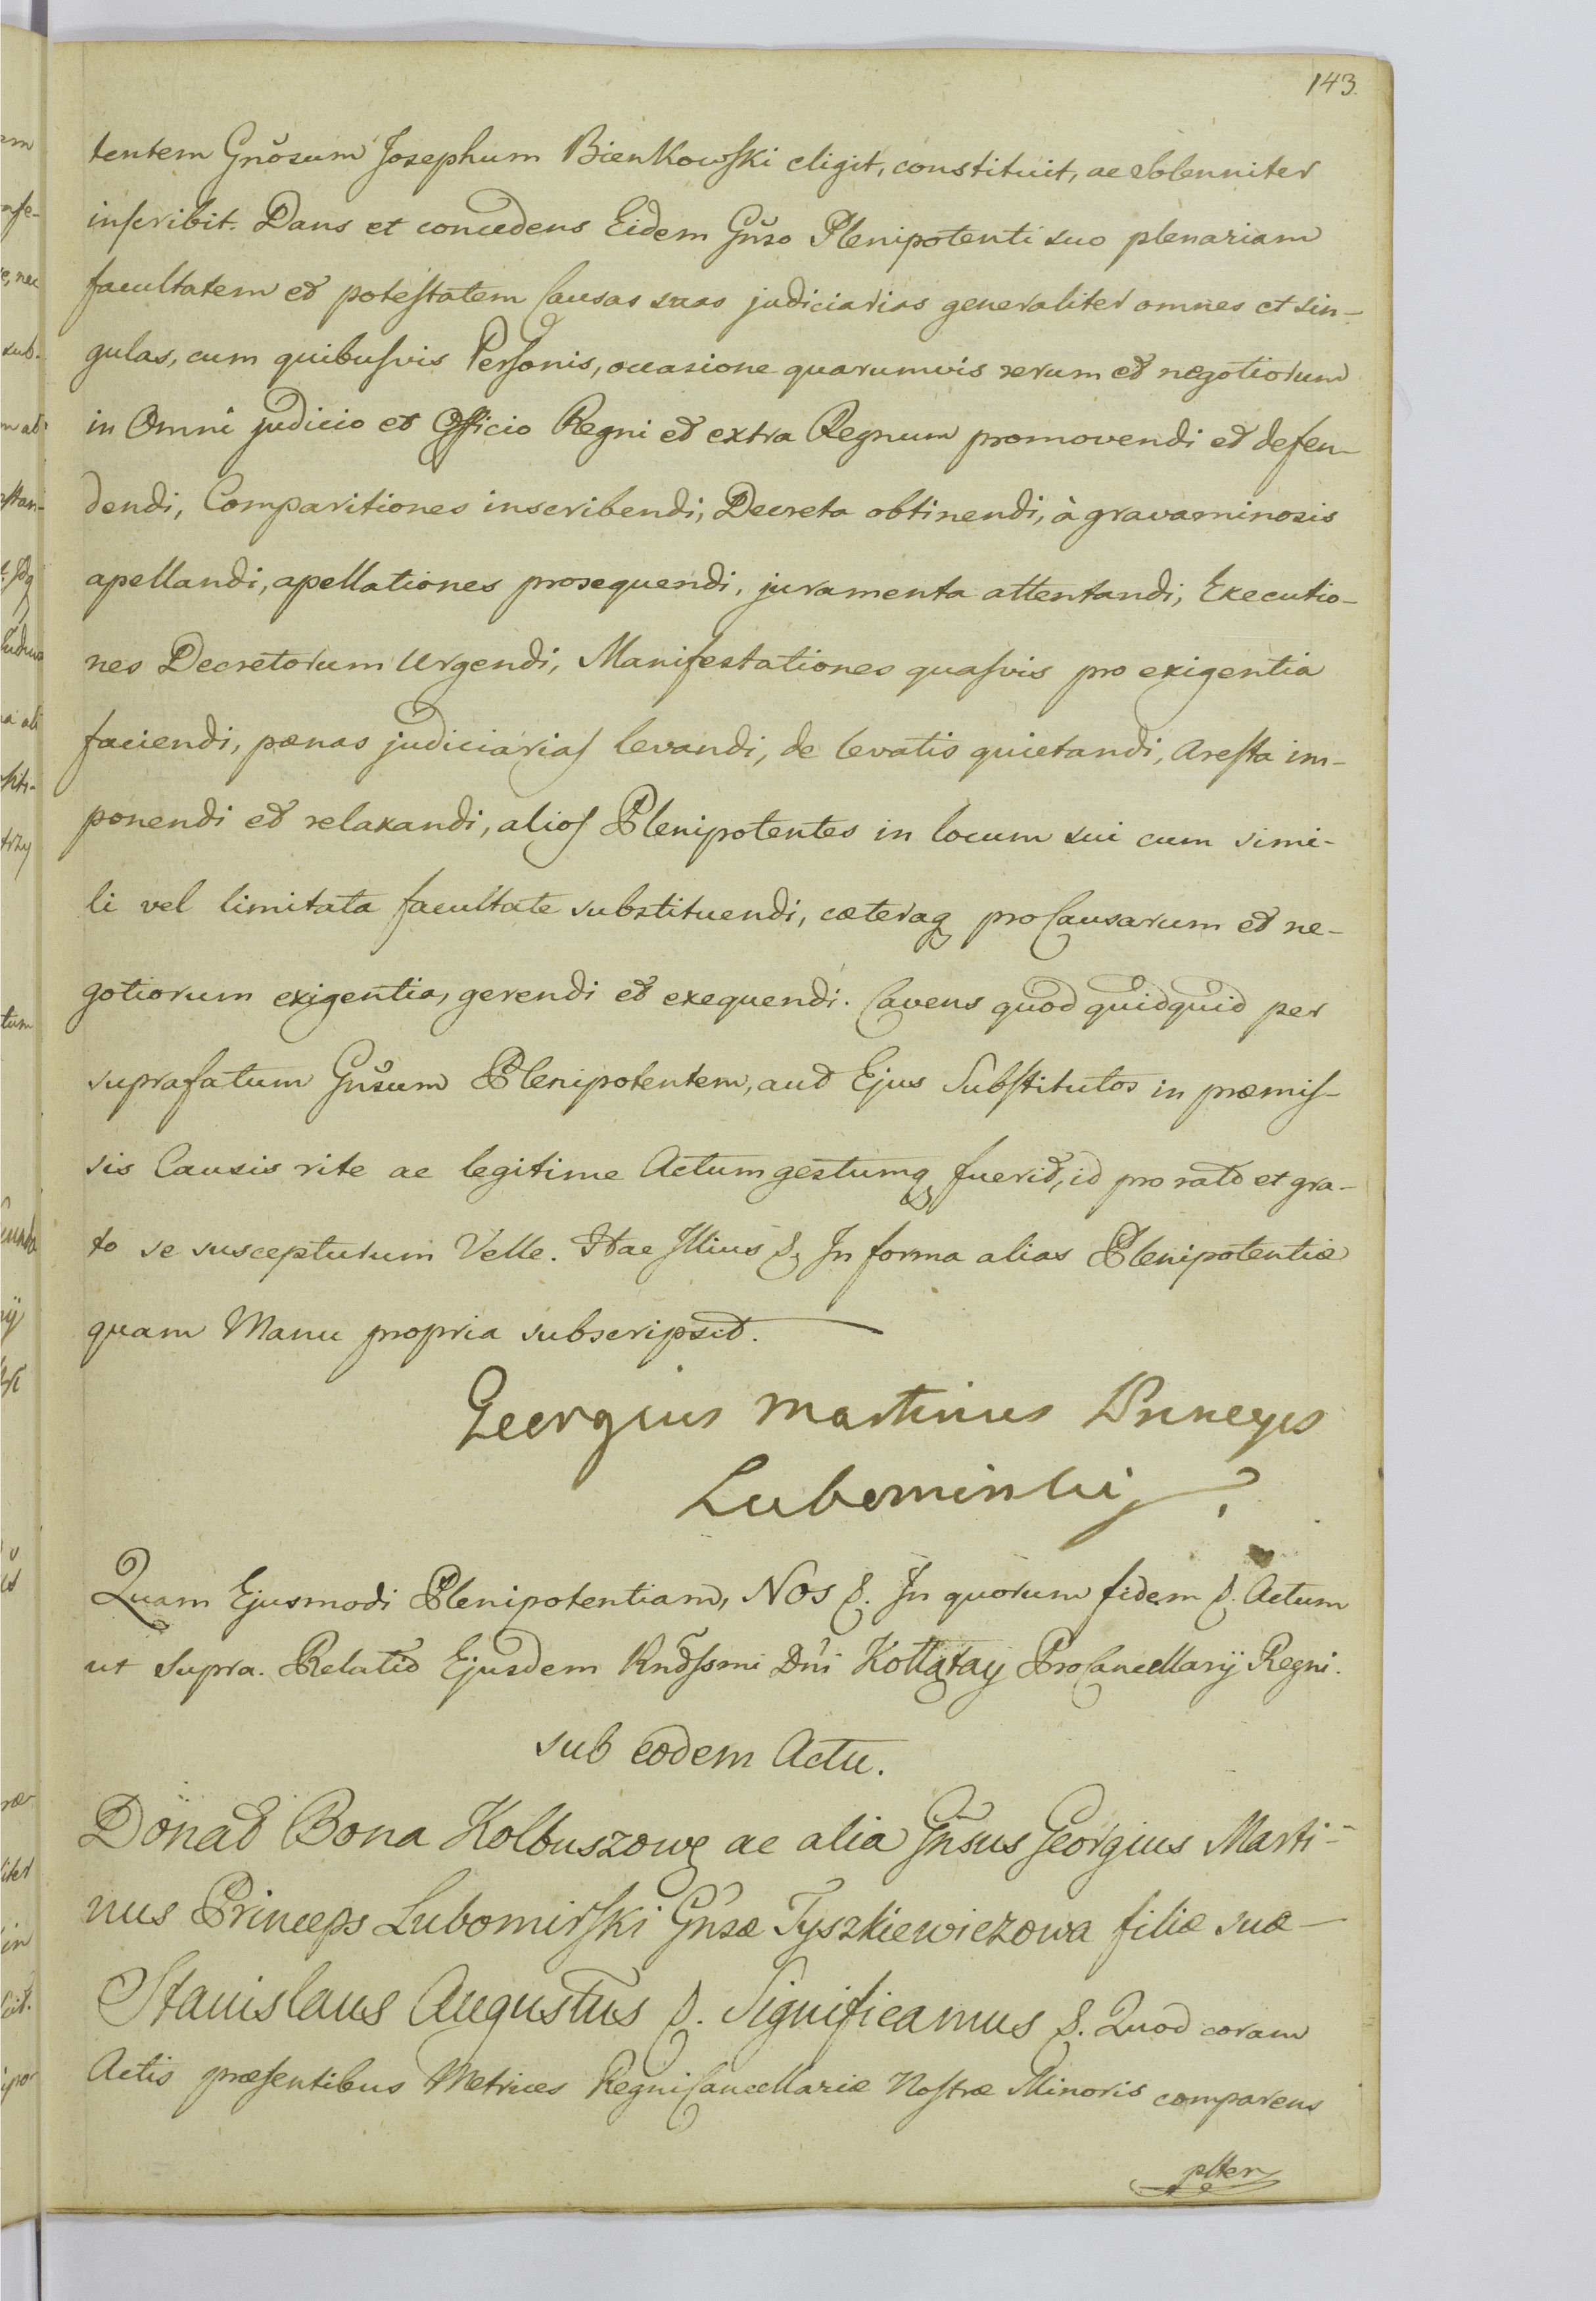 143.
tentem Gnõsum Josephum Bienkowski eligit, constituit, ac solenniter
inscribit. Dans et concedens Eidem Gñso Plenipotenti suo plenariam
facultatem et potestatem Causas suas judiciarias generaliter omnes et sin-
gulas, cum quibusvis Personis, occasione quarumvis rerum et negotiorum
in Omni judicio et Officio Regni et extra Regnum promovendi et defen-
dendi, Comparitiones inscribendi, Decreta obtinendi, à gravaminosis
apellandi, apellationes prosequendi, juramenta attentandi, Executio-
nes Decretorum Urgendi, Manifestationes quasvis pro exigentia
faciendi, pœnas judiciarias levandi, de levatis quietandi, Aresta im-
ponendi et relaxandi, alios Plenipotentes in locum sui cum simi-
li vel limitata facultate substituendi, cæteraq pro Causarum et ne-
gotiorum exigentia, gerendi et exequendi. Cavens quod quidquid per
suprafatum Gñsum Plenipotentem, aut Ejus Substitutos in præmis-
sis Causis rite ac legitime Actum gestumq fuerit, id pro rato et gra-
to se suscepturum Velle. Hac Illius &. In forma alias Plenipotentiæ
quam Manu propria subscripsit.
Georgius Martinus Princeps
Lubomirski
Quam Ejusmodi Plenipotentiam, Nos &. In quorum fidem &. Actum
ut supra. Relatio Ejusdem Rndssmi Dñi Kołłątay ProCancellarij Regni.
sub eodem Actu.
Donat Bona Kolbuszowę ac alia Gñsus Georgius Marti-
nus Princeps Lubomirski Gñsæ Tyszkiewiczowa filiæ suæ
Stanislaus Augustus &. Significamus &. Quod coram
Actis præsentibus Metrices Regni Cancellariæ Nostræ Minoris comparens